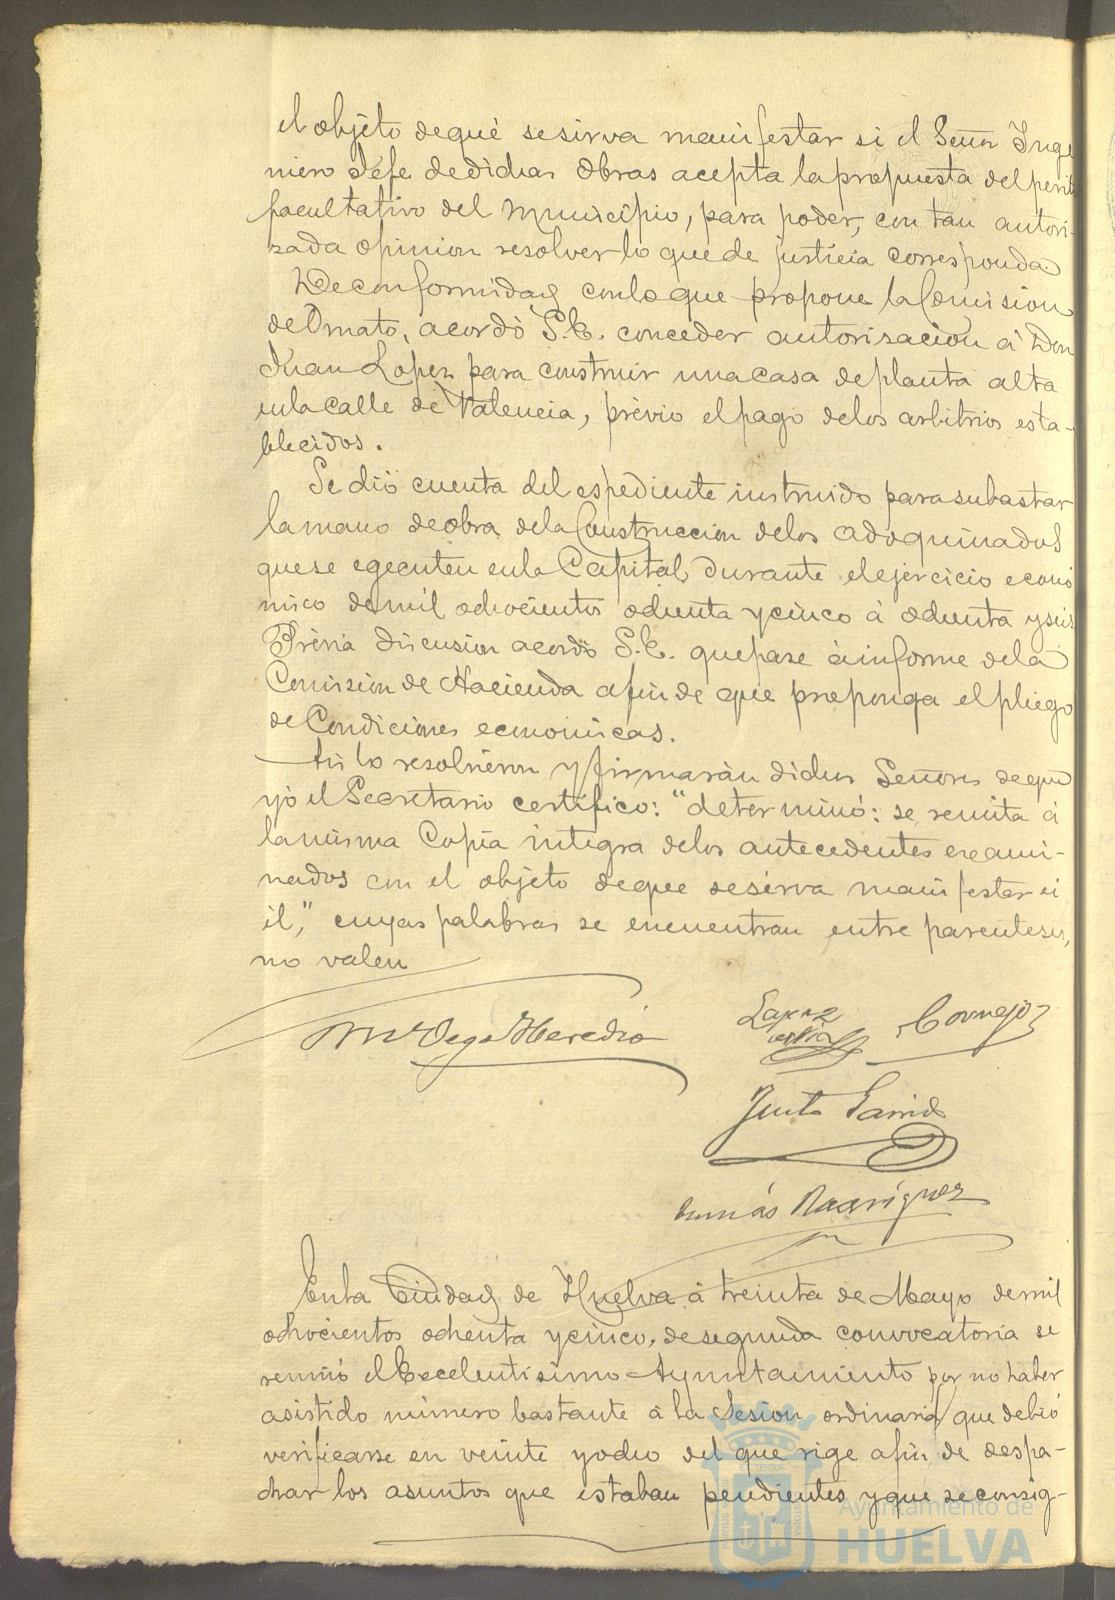 el objeto de que se sirva manifestar si el Señor Inge
niero Jefe de dichas Obras acepta la propuesta del perito
facultativo del Municipio, para poder, con tan autori-
zada opinion resolver lo que de justicia corresponda
De conformidad con lo que propone la Comision
de Ornato, acordó S.E. conceder autorizacion á Don
Juan Lopez para construir una casa de planta alta
en la calle de Valencia, prévio el pago de los arbitrios esta-
blecidos.
Se dió cuenta del espediente instruido para subastar
la mano de obra de la Construccion de los adoquinados
que se egecuten en la Capital, durante el ejercicio econó
mico de mil ochocientos ochenta y cinco á ochenta y seis
Prévia discusion acordó S.E. que pase á informe de la
Comision de Hacienda afin de que proponga el pliego
de Condiciones economicas.
Asi lo resolvieron y firmarán dichos Señores de que
yó el Secretario certifico: "determinó: se remita á
la misma Copia integra de los antecedentes exami-
nados con el objeto de que se sirva manifestar si
él," cuyas palabras se encuentran entre parentesis,
no valen
Ml Vega Heredia
Lopez
Cornejo
Justo Garrido
Tomás Rodríguez
En la Ciudad de Huelva á treinta de Mayo de mil
ochocientos ochenta y cinco, de segunda convocatoria se
reunió el Excelentisimo Ayuntamiento por no haber
asistido número bastante á la Sesion ordinaria que debió
verificarse en veinte y ocho del que rige afin de despa-
char los asuntos que estaban pendientes y que se consig-
Ayuntamiento de
HUELVA